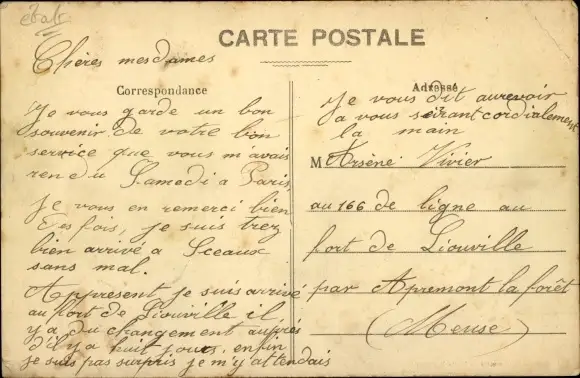 CARTE POSTALE
Chères mesdames
Correspondance
Je vous garde un bon
souvenir de votre bon
service que vous m'avais
rendu Samedi a Paris
Je vous en remerci bien
fois, je suis trez
bien arrivé a Sceaux
sans mal.
Appresent je suis arrivé
au fort de Liouville il
y a du changement auprès
d'il y a huit jours, enfin
je suis pas surpris je m'y attendais
Adresse
Je vous dit aurevoir
a vous serrant cordialement
la main
M Arsène Vivier
au 166 de ligne au
fort de Liouville
par Apremont la forêt
(Meuse)